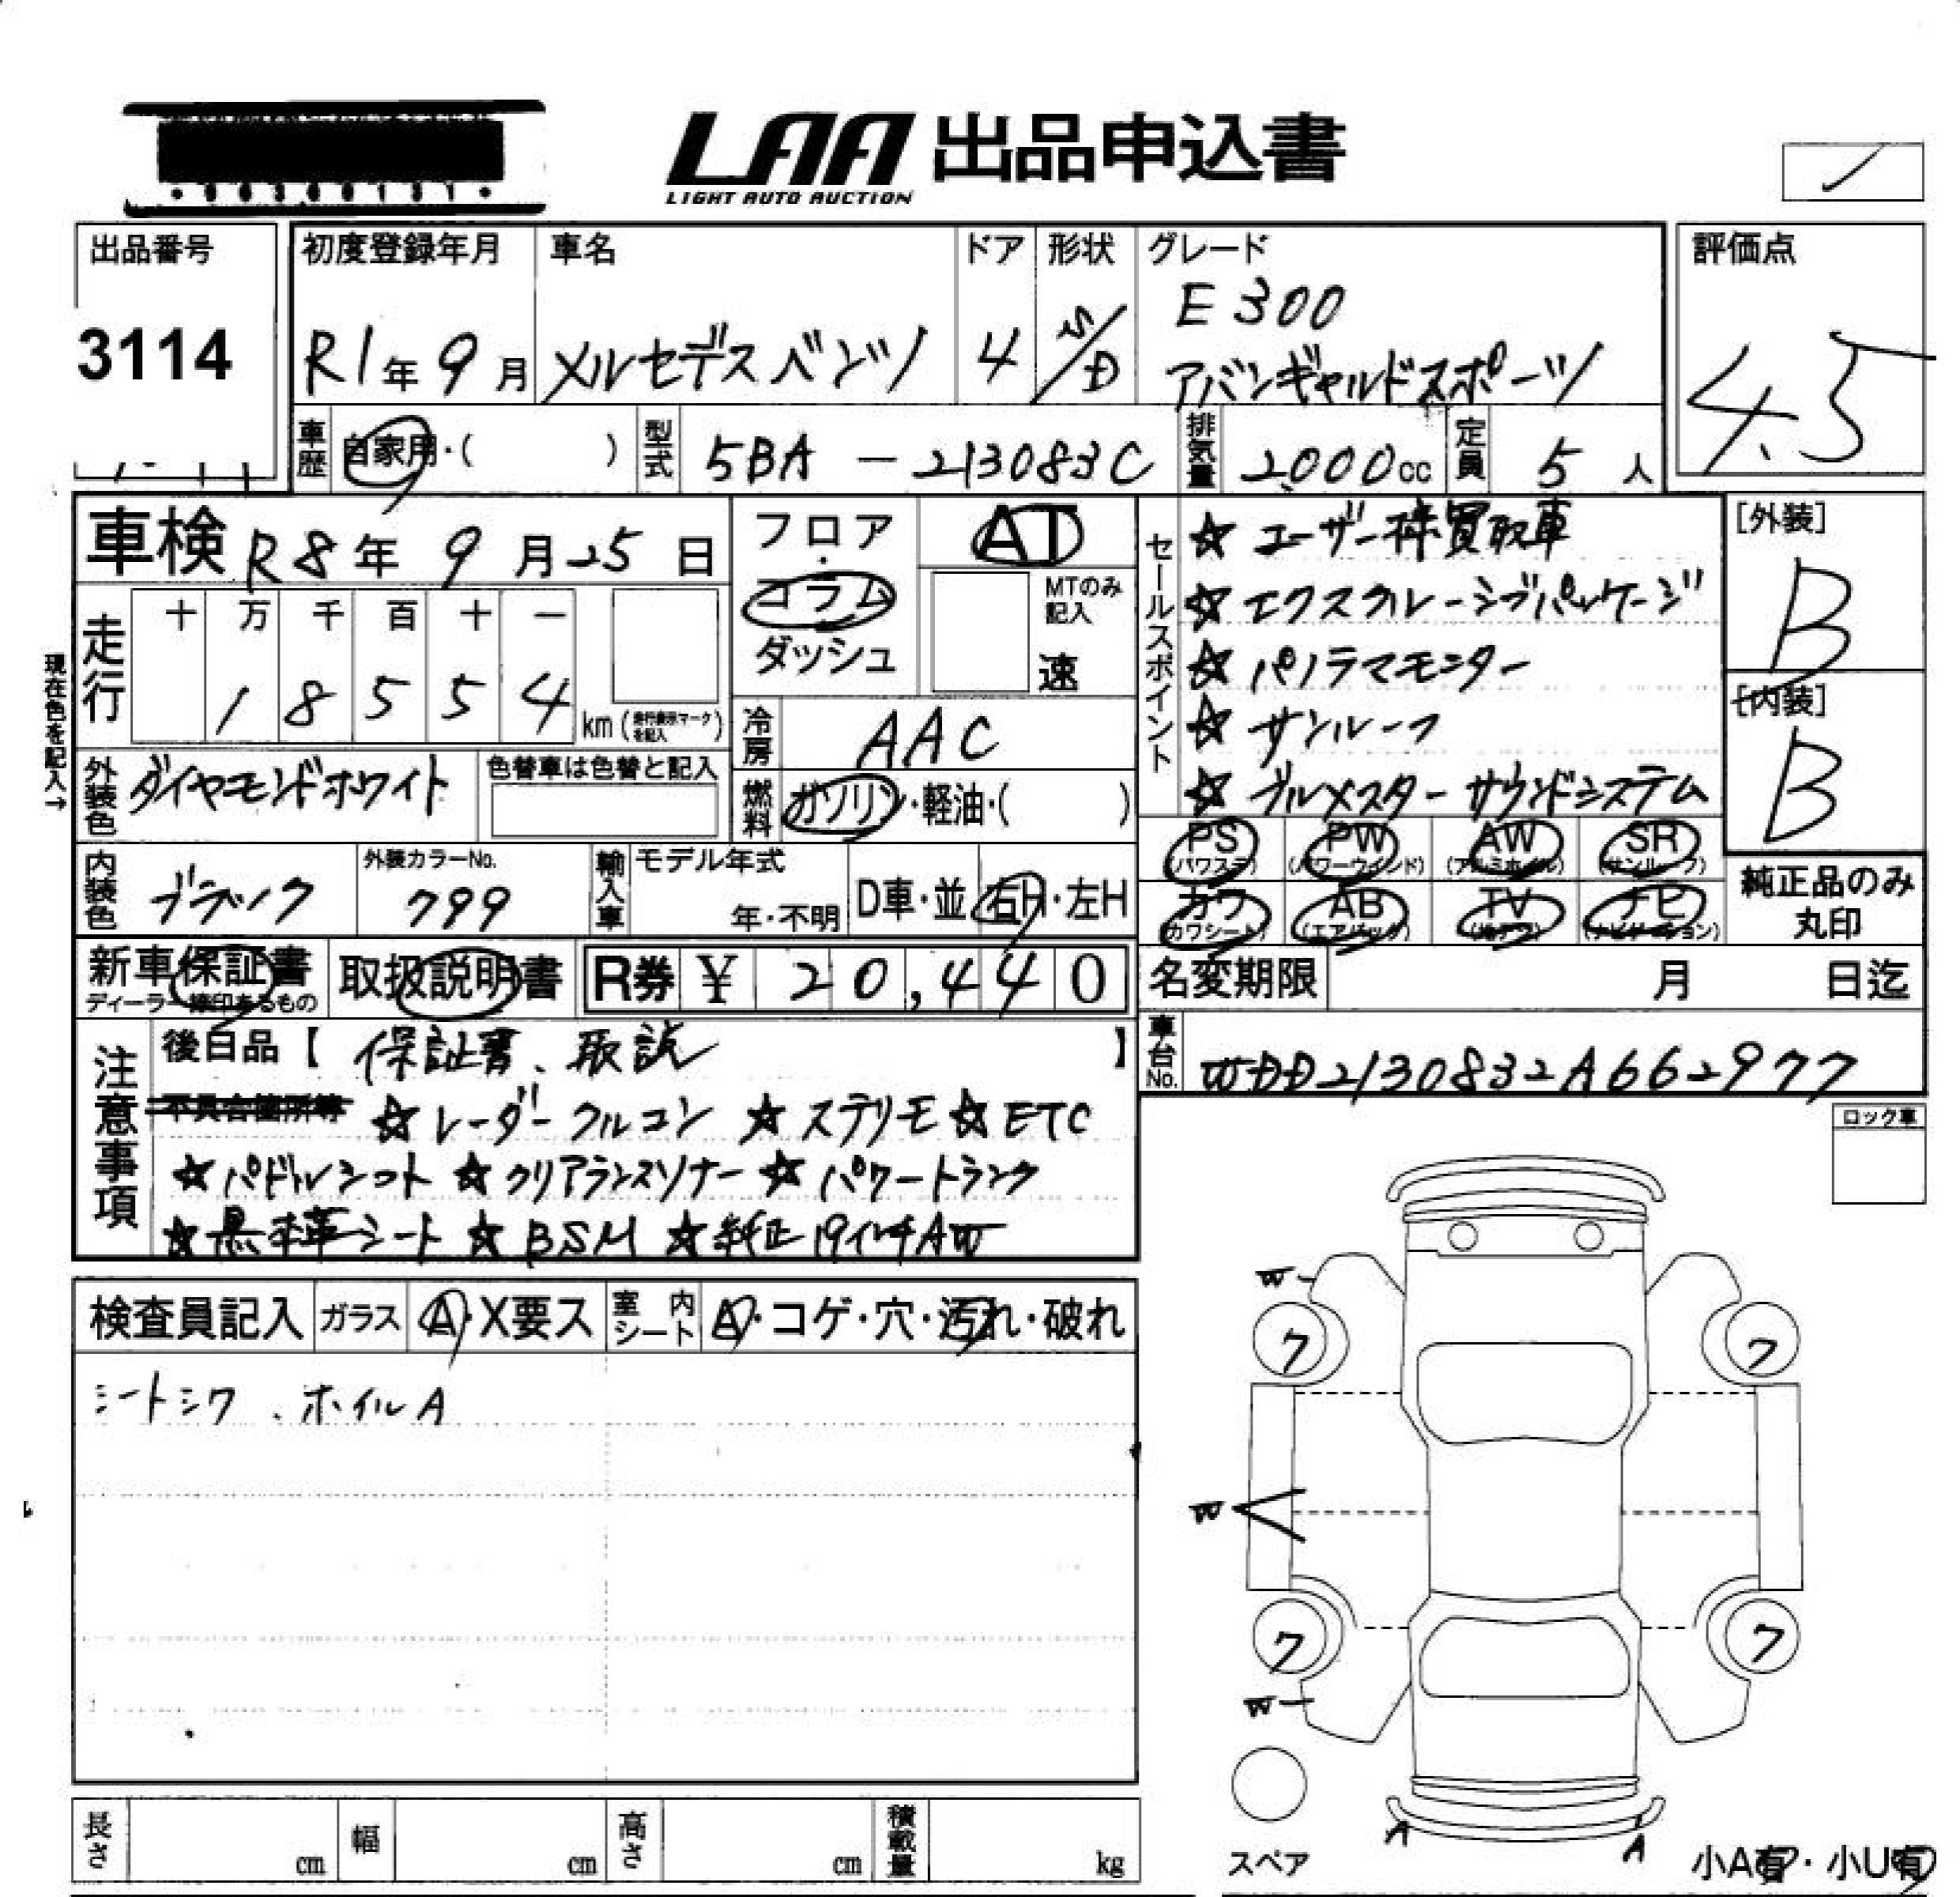 LAA 出品申込書
LIGHT AUTO AUCTION
出品番号
3114
初度登録年月
R1年9月
車名
メルセデスベンツ
ドア
4
形状
S/D
グレード
E300
アバンギャルドスポーツ
評価点
4.5
車歴 自家用・( )
型式 5BA-213083C
排気量 2000cc
定員 5人
車検 R8年9月25日
フロア・コラム・ダッシュ
AT
MTのみ記入
速
現在色を記入→
走行
十 万 千 百 十 一
1 8 5 5 4
km (走行表示マークを記入)
冷房 AAC
外装色 ダイヤモンドホワイト
色替車は色替と記入
燃料 ガソリン・軽油・( )
内装色 ブラック
外装カラーNo.
799
輸入車
モデル年式
年・不明
D車・並
右H・左H
新車保証書
ディーラー捺印あるもの
取扱説明書
R券 ¥ 20,440
セールスポイント
☆ ユーザー様買取車
☆ エクスクルーシブパッケージ
☆ パノラマモニター
☆ サンルーフ
☆ ブルメスターサウンドシステム
[外装]
B
[内装]
B
PS (パワステ)
PW (パワーウインド)
AW (アルミホイル)
SR (サンルーフ)
カワ (カワシート)
AB (エアバック)
TV
ナビ (ナビゲーション)
純正品のみ
丸印
名変期限 月 日迄
車台No. WDD2130832A662977
注意事項
後日品【 保証書、取説 】
不具合箇所等 ☆レーダークルコン ☆ステリモ ☆ETC
☆パドルシフト ☆クリアランスソナー ☆パワートランク
☆黒本革シート ☆BSM ☆純正19インチAW
ロック車
検査員記入
ガラス A・X要ス
室内シート A・コゲ・穴・汚れ・破れ
シートシワ、ホイルA
W
7
7
W
7
7
W
A
A
スペア
小A有・小U有
長さ cm
幅 cm
高さ cm
積載量 kg